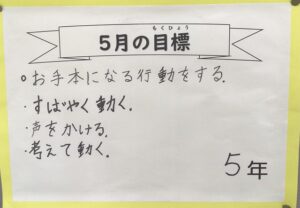 もくひょう
5月の目標
○お手本になる行動をする.
・すばやく動く.
・声をかける.
・考えて動く.
5年